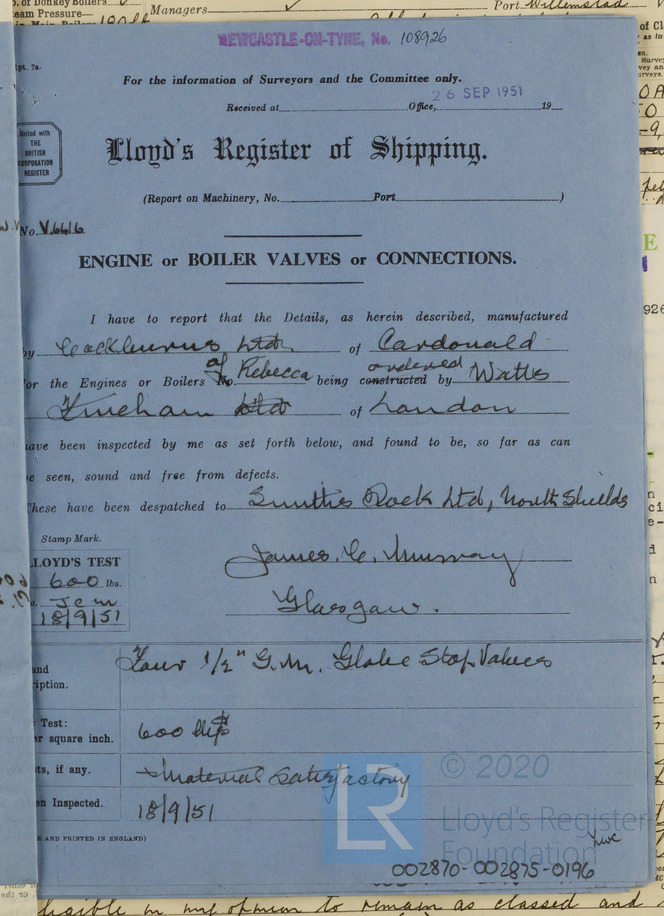 . of Donkey Boilers
Managers
Port Willemstad
eam Pressure—
NEWCASTLE-ON-TYNE, No. 108926
pt. 7a.
For the information of Surveyors and the Committee only.
26 SEP 1951
Received at Office, 19
United with
THE
BRITISH
CORPORATION
REGISTER
Lloyd's Register of Shipping.
(Report on Machinery, No. Port )
No. V.6616
ENGINE or BOILER VALVES or CONNECTIONS.
I have to report that the Details, as herein described, manufactured
by Cockburns Ltd of Cardonald
of Rebecca ordered
or the Engines or Boilers No. being constructed by Watts
Fincham Ltd of London
ave been inspected by me as set forth below, and found to be, so far as can
e seen, sound and free from defects.
These have been despatched to Smiths Dock Ltd, North Shields
Stamp Mark.
LLOYD'S TEST
600 lbs.
JCM
18/9/51
James C. Murray
Glasgow.
and
ription.
Four 1/2" G.M. Globe Stop Valves
Test:
er square inch.
600 lbs
ts, if any.
Material Satisfactory
en Inspected.
18/9/51
E AND PRINTED IN ENGLAND)
LR
© 2020
Lloyd's Register
Foundation
002870-002875-0196
eligible in my opinion to remain as classed and